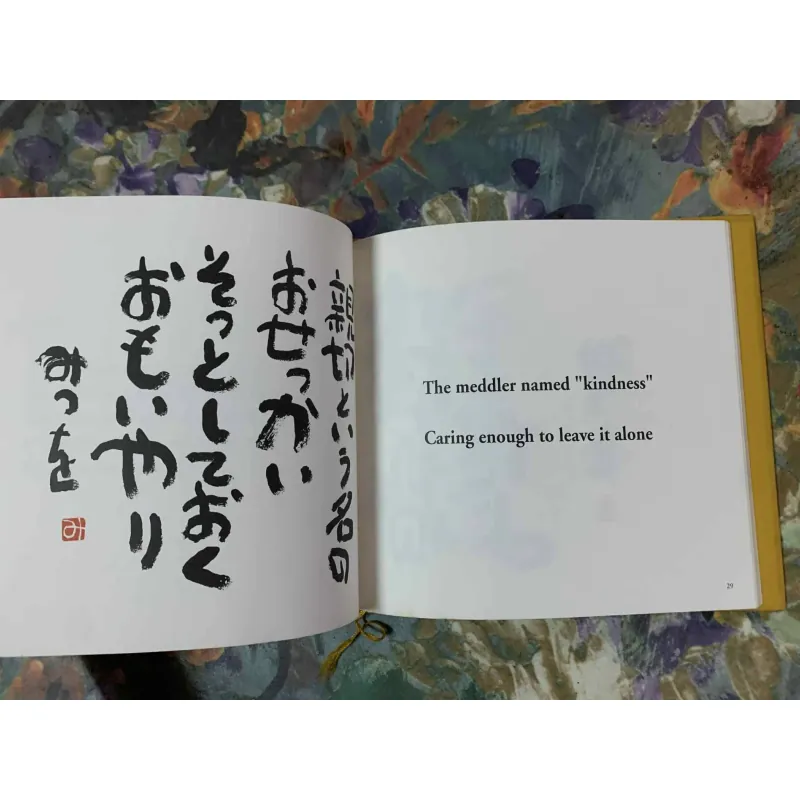 親切という名の
おせっかい
そっとしておく
おもいやり
みつを
The meddler named "kindness"
Caring enough to leave it alone
29